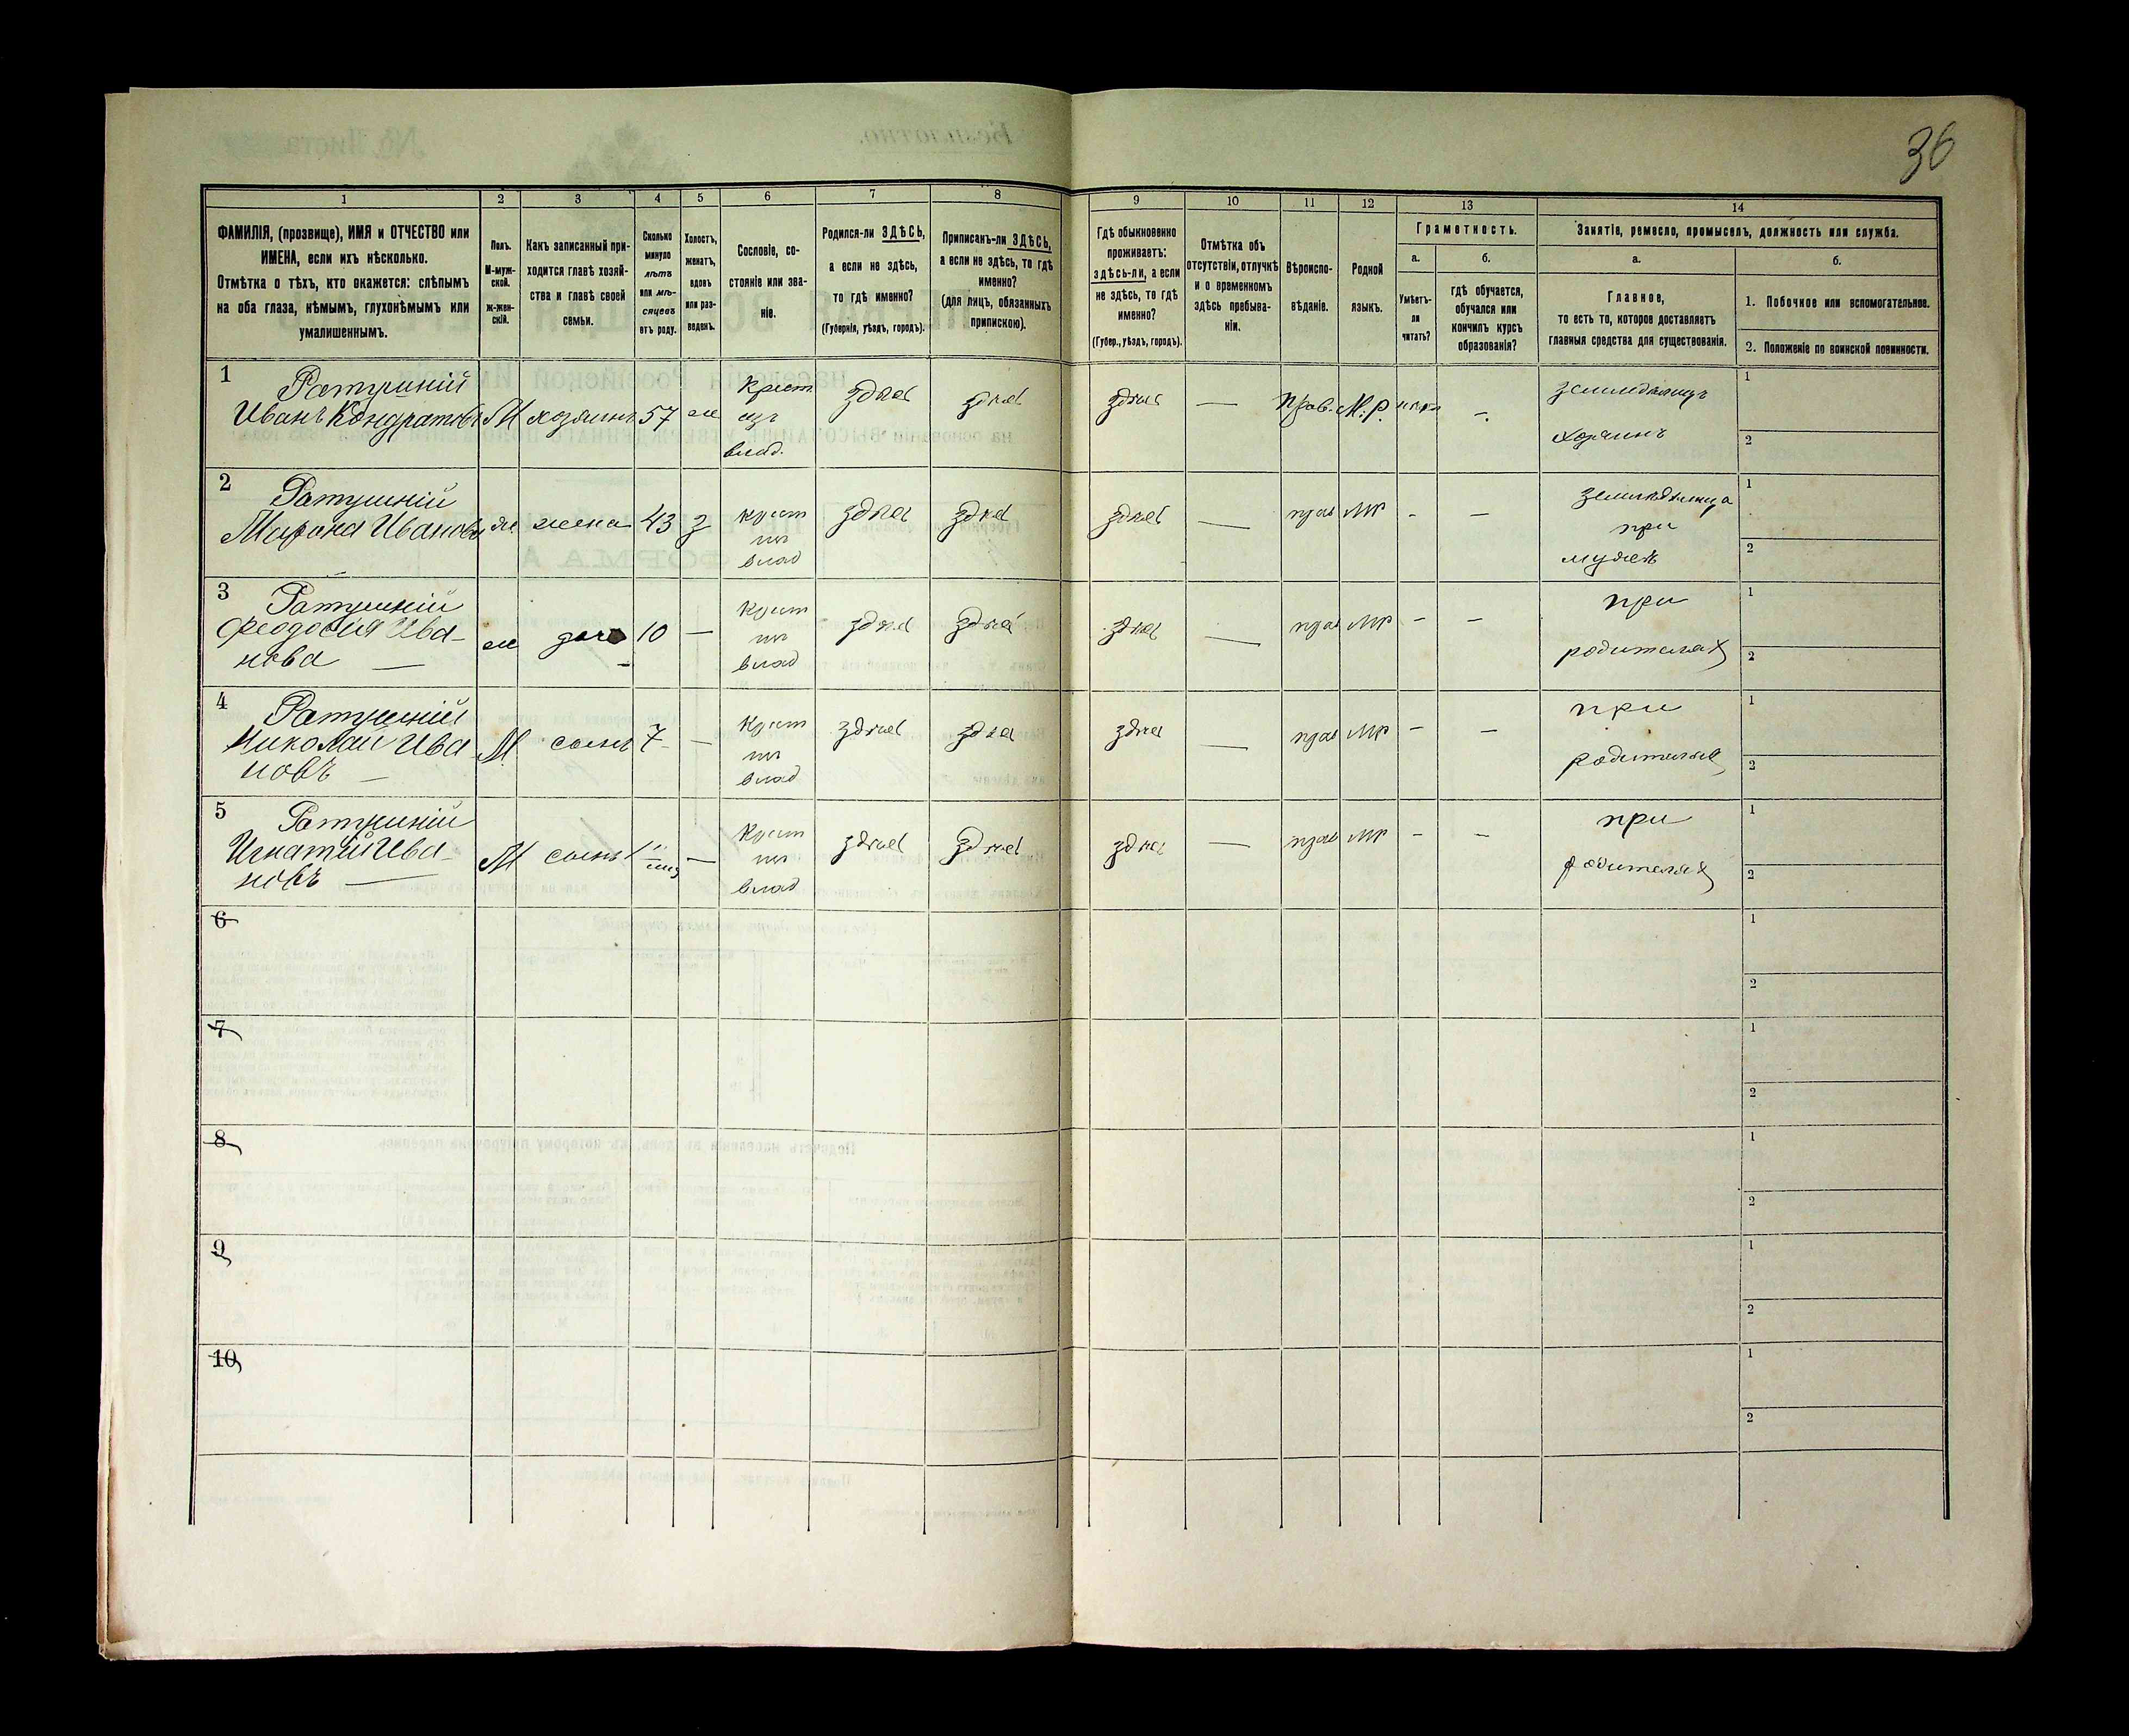 36
1 2 3 4 5 6 7 8 9 10 11 12 13 14
ФАМИЛІЯ, (прозвище), ИМЯ и ОТЧЕСТВО или
ИМЕНА, если ихъ нѣсколько.
Отмѣтка о тѣхъ, кто окажется: слѣпымъ
на оба глаза, нѣмымъ, глухонѣмымъ или
умалишеннымъ.
Полъ.
М-муж-
ской.
ж-жен-
скій.
Какъ записанный при-
ходится главѣ хозяй-
ства и главѣ своей
семьи.
Сколько
минуло
лѣтъ
или мѣ-
сяцевъ
отъ роду.
Холостъ,
женатъ,
вдовъ
или раз-
веденъ.
Сословіе, со-
стояніе или зва-
ніе.
Родился-ли ЗДѢСЬ,
а если не здѣсь,
то гдѣ именно?
(Губернія, уѣздъ, городъ).
Приписанъ-ли ЗДѢСЬ,
а если не здѣсь, то гдѣ
именно?
(для лицъ, обязанныхъ
припискою).
Гдѣ обыкновенно
проживаетъ:
здѣсь-ли, а если
не здѣсь, то гдѣ
именно?
(Губер., уѣздъ, городъ).
Отмѣтка объ
отсутствіи, отлучкѣ
и о временномъ
здѣсь пребыва-
ніи.
Вѣроиспо-
вѣданіе.
Родной
языкъ.
Грамотность.
а.
Умѣетъ-
ли
читать?
б.
гдѣ обучается,
обучался или
кончилъ курсъ
образованія?
Занятіе, ремесло, промыселъ, должность или служба.
а.
Главное,
то есть то, которое доставляетъ
главныя средства для существованія.
б.
1. Побочное или вспомогательное.
2. Положеніе по воинской повинности.
1 Ратушній
Иванъ Кондратовъ М хозяинъ 57 ж
Крест
изъ
влад.
здѣсь здѣсь здѣсь — Прав. М.Р. —
земледѣлецъ
хозяинъ
1
2
2 Ратушній
Иванова ж жена 43 з
крест
из
влад
здѣсь здѣсь здѣсь — прав МР - —
при
мужѣ
1
2
3 Ратушній
Феодосія Ива-
нова — ж доч 10 —
крест
из
влад
здѣсь здѣсь здѣсь — прав МР - —
при
родителях
1
2
4 Ратушній
Николай Ива
новъ — М сынъ 7 —
крест
из
влад
здѣсь здѣсь здѣсь — прав МР - —
при
родителях
1
2
5 Ратушній
Игнатій Ива-
новъ — М сынъ —
крест
из
влад
здѣсь здѣсь здѣсь — прав МР - —
при
родителях
1
2
6
1
2
7
1
2
8
1
2
9
1
2
10
1
2